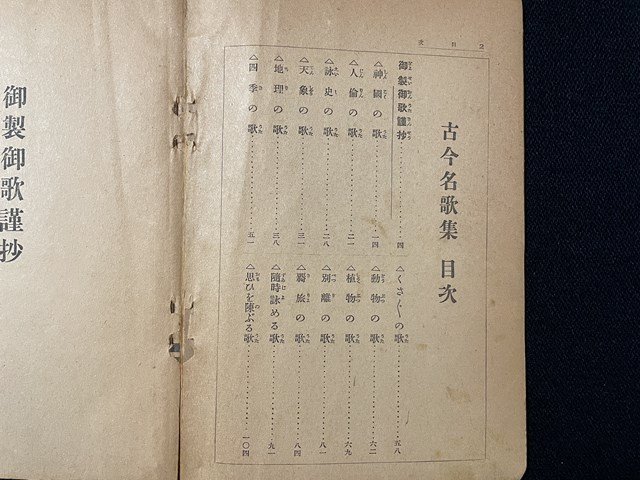 2 目次
古今名歌集 目次
御製御歌謹抄……………四
△神國の歌……………一四
△人倫の歌……………二一
△詠史の歌……………二八
△天象の歌……………三一
△地理の歌……………三八
△四季の歌……………五一
△くさ〴〵の歌……………五八
△動物の歌……………六二
△植物の歌……………六九
△別離の歌……………八一
△羇旅の歌……………八四
△隨時詠める歌……………九一
△思ひを陳ぶる歌……………一〇四
御製御歌謹抄